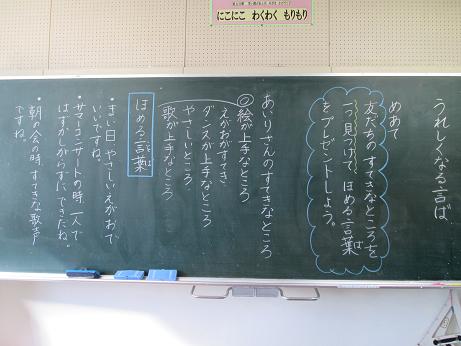 にこにこ わくわく もりもり
うれしくなる言ば
めあて
友だちのすてきなところを
一つ見つけて、ほめる言葉
をプレゼントしよう。
あいりさんのすてきなところ
◎絵が上手なところ
えがおがすてき
ダンスが上手なところ
やさしいところ
歌が上手なところ
ほめる言葉
・まい日やさしいえがおで
いいですね。
・サマーコンサートの時、一人で
はずかしがらずにできたね。
・朝の会の時、すてきな歌声
ですね。